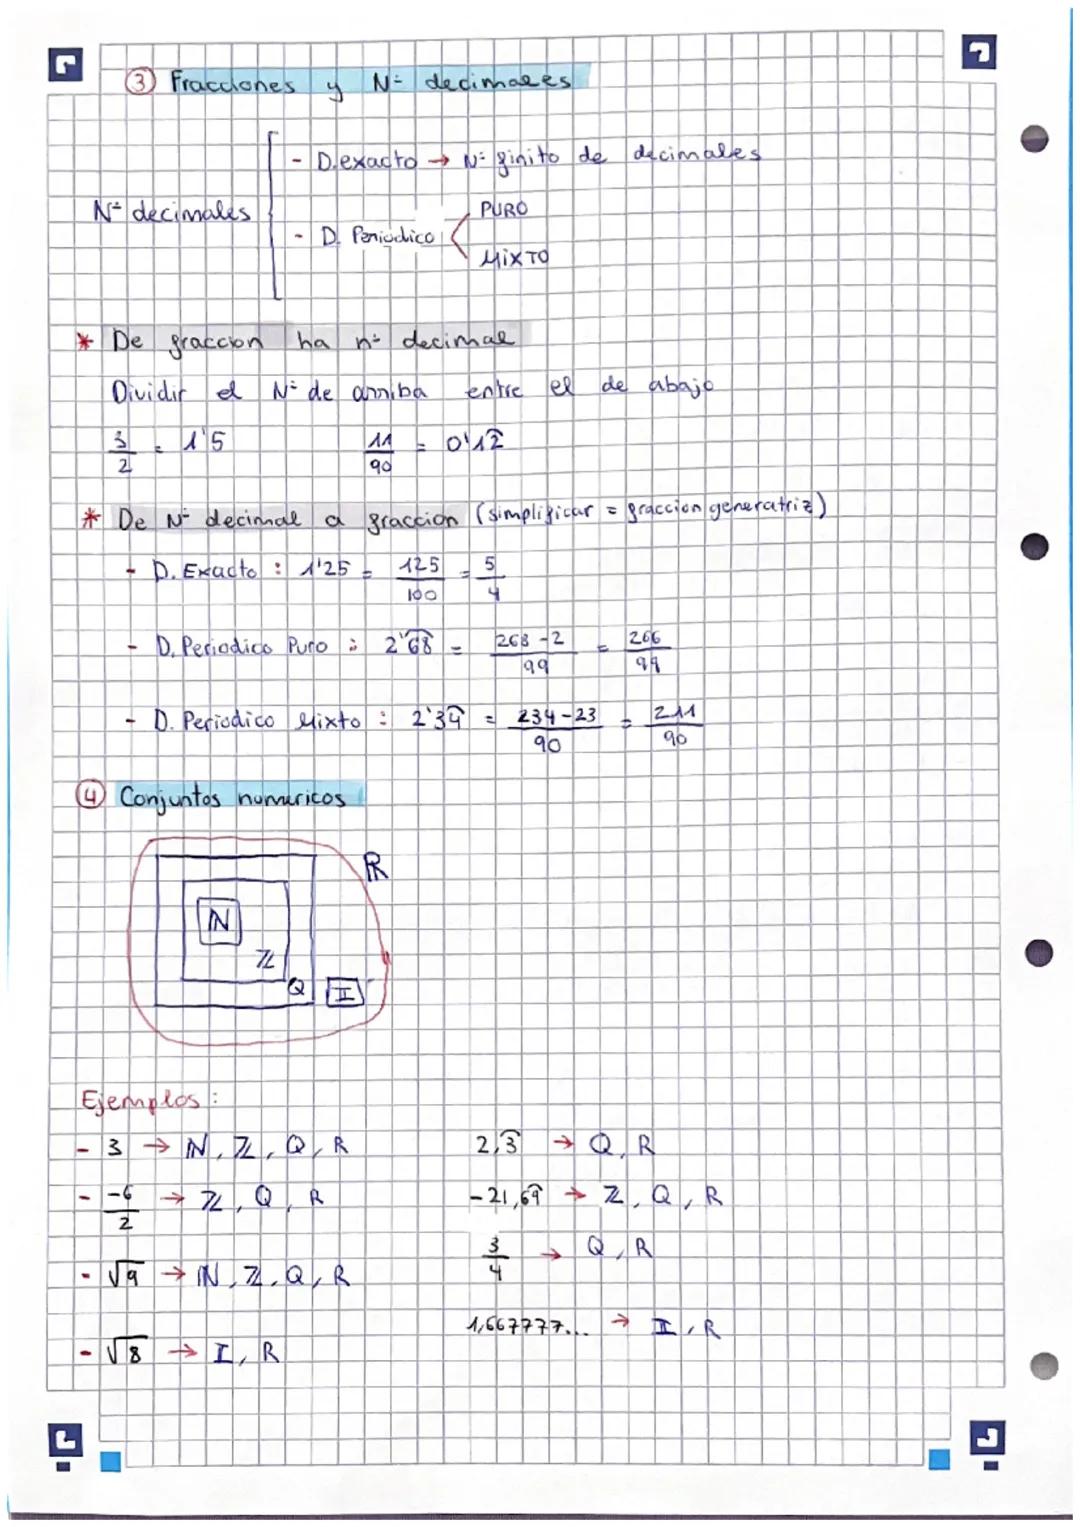 ③ Fracciones y Nº decimales
- D.exacto → Nº finito de decimales
Nº decimales
PURO
- D. Periodico
MIXTO
* De fraccion ha nº decimal
Dividir el Nº de arriba entre el de abajo
3/2 = 1'5 11/90 = 0'12̂
* De Nº decimal a fraccion (simplificar = fraccion generatriz)
- D. Exacto : 1'25 = 125/100 = 5/4
- D. Periodico Puro : 2'6̂8̂ = 268-2/99 = 266/99
- D. Periodico Mixto : 2'34̂ = 234-23/90 = 211/90
④ Conjuntos numericos
ℝ
ℕ
ℤ
Q
I
Ejemplos :
- 3 → ℕ, ℤ, Q, R 2,3̂ → Q, R
- -6/2 → ℤ, Q, R -21,69̂ → ℤ, Q, R
3/4 → Q, R
- √9 → ℕ, ℤ, Q, R
1,667777... → I, R
- √8 → I, R